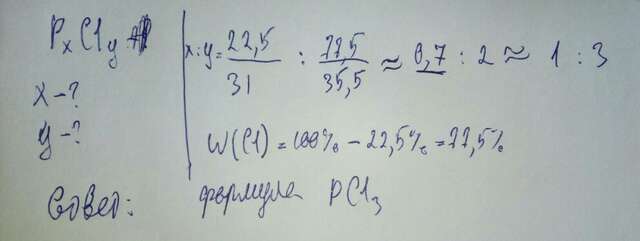 PxCly
x-?
y-?
x:y=22,5/31 : 77,5/35,5 ≈ 0,7 : 2 ≈ 1 : 3
W(Cl) = 100% - 22,5% = 77,5%
Ответ: формула PCl3